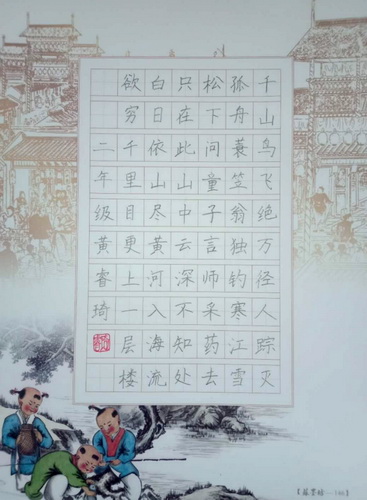 千山鸟飞绝万径人踪灭
孤舟蓑笠翁独钓寒江雪
松下问童子言师采药去
只在此山中云深不知处
白日依山尽黄河入海流
欲穷千里目更上一层楼
二年级黄睿琦